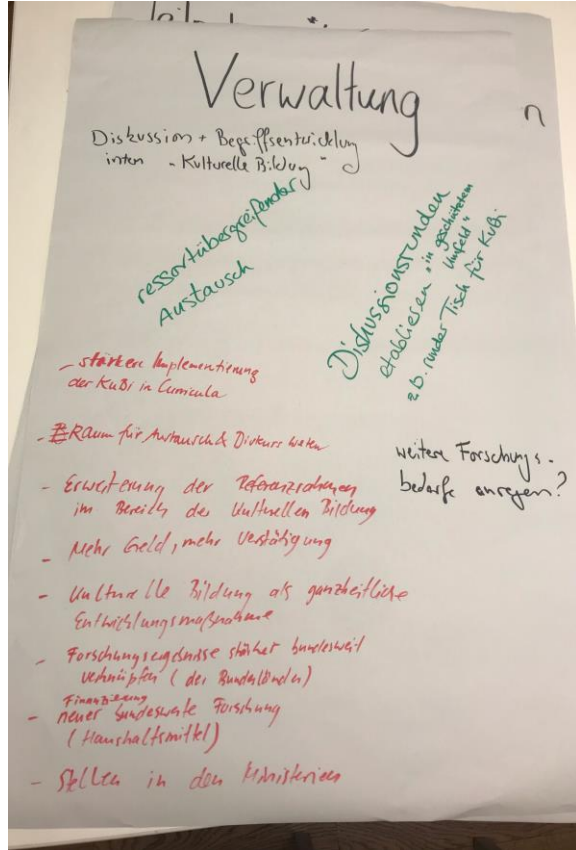 Verwaltung
n
Diskussion + Begriffsentwicklung
intern "Kulturelle Bildung"
ressortübergreifender
Austausch
Diskussionsrunden
etablieren "in geschütztem
Umfeld"
z.b. runder Tisch für KuBi
- stärkere Implementierung
der KuBi in Curricula
- Raum für Austausch & Diskurs bieten
weitere Forschungs-
bedarfe anregen?
- Erweiterung der Referenzrahmen
im Bereich der kulturellen Bildung
- Mehr Geld, mehr Verstätigung
- Kulturelle Bildung als ganzheitliche
Entwicklungsmaßnahme
- Forschungsergebnisse stärker bundesweit
verknüpfen (der Bundesländer)
Finanzierung
- neuer bundesweite Forschung
(Haushaltsmittel)
- Stellen in den Ministerien